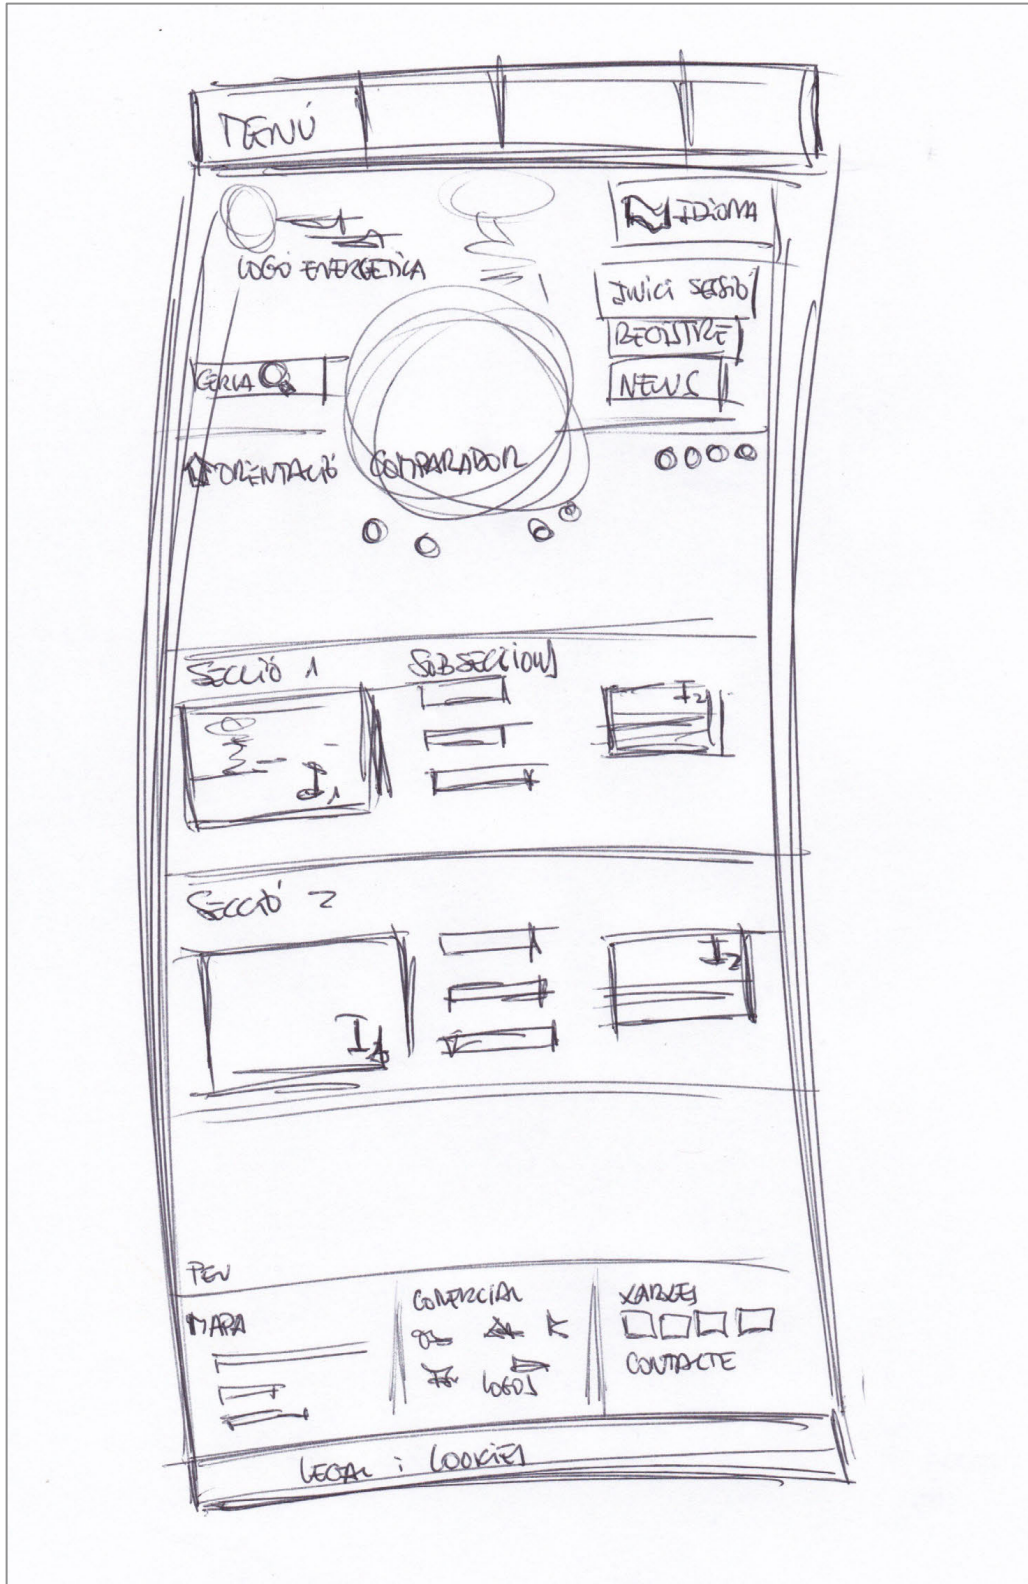 MENÚ
IDIOMA
LOGO ENERGETICA
INICI SESSIÓ
REGISTRE
CERCA
NEWS
ORIENTACIÓ
COMPARADOR
SECCIÓ 1
SUBSECCIONS
I2
I1
SECCIÓ 2
I2
I1
PEU
MAPA
COMERCIAL
LOGOS
XARXES
CONTACTE
LEGAL i COOKIES